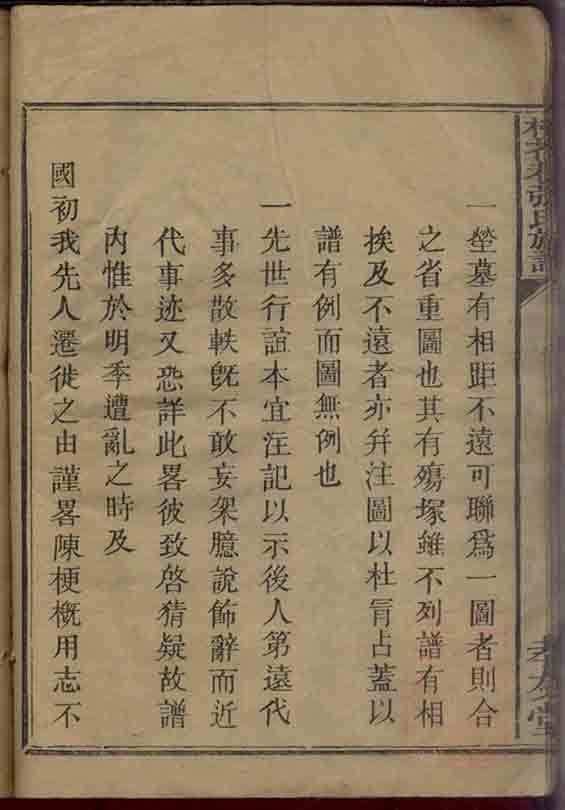 一塋墓有相距不遠可聯爲一圖者則合
之省重圖也其有殤塚雖不列譜有相
挨及不遠者亦并注圖以杜冐占蓋以
譜有例而圖無例也
一先世行誼本宜注記以示後人第遠代
事多散軼旣不敢妄架臆說飾辭而近
代事迹又恐詳此畧彼致啓猜疑故譜
內惟於明季遭亂之時及
國初我先人遷徙之由謹畧陳梗槪用志不
張氏族譜
孝友堂